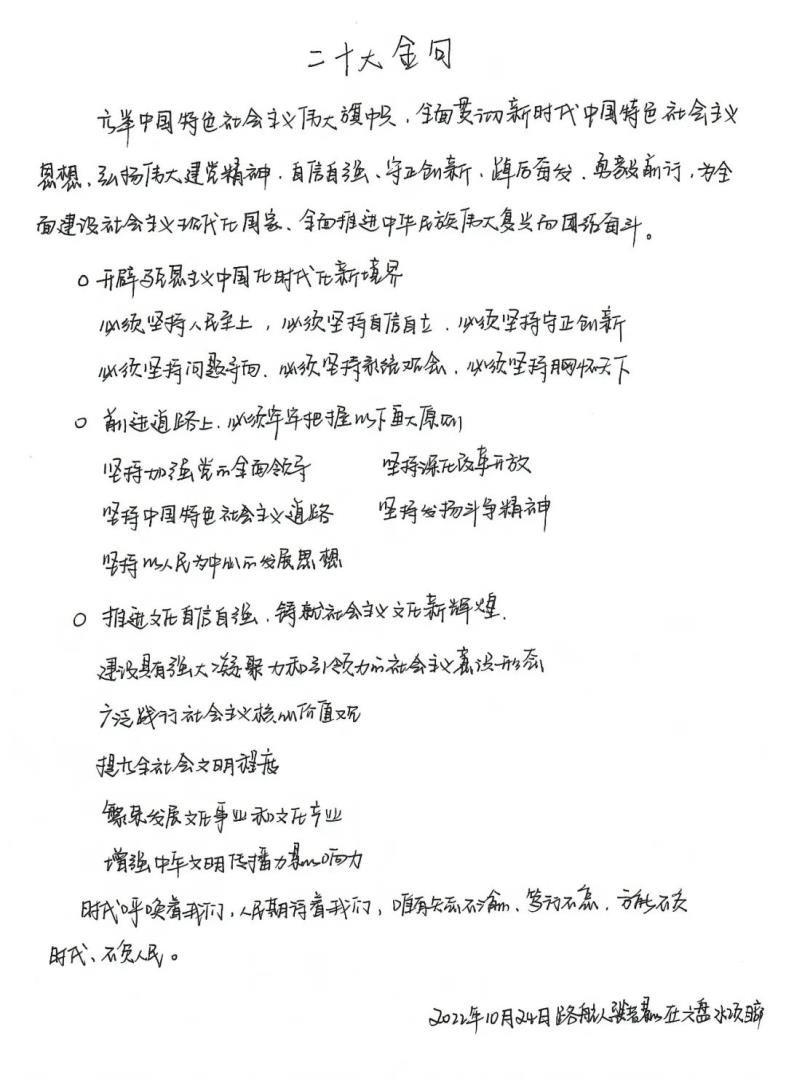 二十大金句
高举中国特色社会主义伟大旗帜,全面贯彻新时代中国特色社会主义
思想,弘扬伟大建党精神,自信自强、守正创新,踔厉奋发、勇毅前行,为全
面建设社会主义现代化国家、全面推进中华民族伟大复兴而团结奋斗。
○ 开辟马克思主义中国化时代化新境界
必须坚持人民至上,必须坚持自信自立,必须坚持守正创新
必须坚持问题导向,必须坚持系统观念,必须坚持胸怀天下
○ 前进道路上,必须牢牢把握以下重大原则
坚持加强党的全面领导 坚持深化改革开放
坚持中国特色社会主义道路 坚持发扬斗争精神
坚持以人民为中心的发展思想
○ 推进文化自信自强,铸就社会主义文化新辉煌.
建设具有强大凝聚力和引领力的社会主义意识形态
广泛践行社会主义核心价值观
提高全社会文明程度
繁荣发展文化事业和文化产业
增强中华文明传播力影响力
时代呼唤着我们,人民期待着我们,唯有矢志不渝、笃行不怠,方能不负
时代、不负人民。
2022年10月24日路航人在六盘水项部